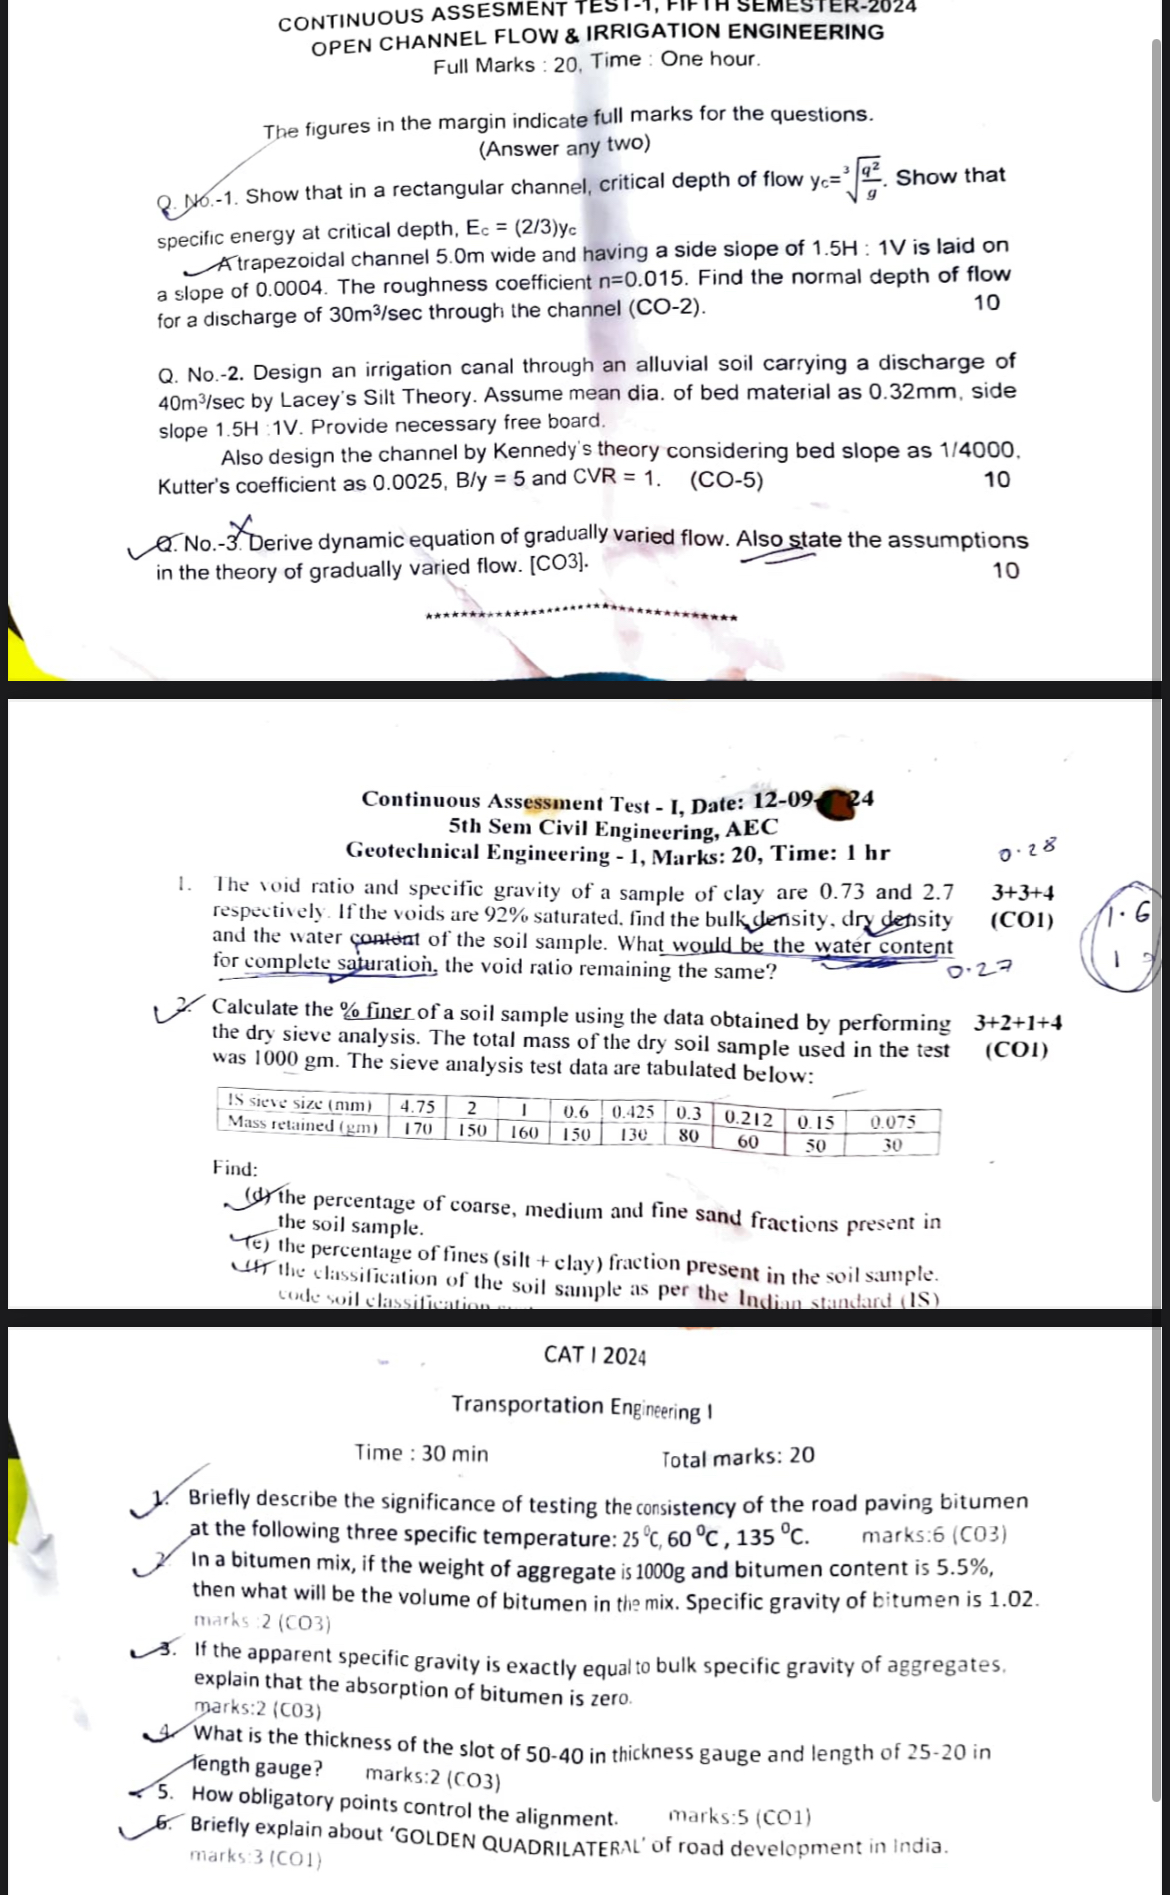 CONTINUOUS ASSESMENT TEST-1, FIFTH SEMESTER-2024
OPEN CHANNEL FLOW & IRRIGATION ENGINEERING
Full Marks : 20, Time : One hour.
The figures in the margin indicate full marks for the questions.
(Answer any two)
Q. No.-1. Show that in a rectangular channel, critical depth of flow yc=³√(q²/g). Show that
specific energy at critical depth, Ec = (2/3)yc
A trapezoidal channel 5.0m wide and having a side slope of 1.5H : 1V is laid on
a slope of 0.0004. The roughness coefficient n=0.015. Find the normal depth of flow
for a discharge of 30m³/sec through the channel (CO-2). 10
Q. No.-2. Design an irrigation canal through an alluvial soil carrying a discharge of
40m³/sec by Lacey's Silt Theory. Assume mean dia. of bed material as 0.32mm, side
slope 1.5H :1V. Provide necessary free board.
Also design the channel by Kennedy's theory considering bed slope as 1/4000,
Kutter's coefficient as 0.0025, B/y = 5 and CVR = 1. (CO-5) 10
Q. No.-3. Derive dynamic equation of gradually varied flow. Also state the assumptions
in the theory of gradually varied flow. [CO3]. 10
***********************************
Continuous Assessment Test - I, Date: 12-09- 24
5th Sem Civil Engineering, AEC
Geotechnical Engineering - 1, Marks: 20, Time: 1 hr
0.28
1. The void ratio and specific gravity of a sample of clay are 0.73 and 2.7 3+3+4
respectively. If the voids are 92% saturated, find the bulk density, dry density (CO1)
1.6
and the water content of the soil sample. What would be the water content
for complete saturation, the void ratio remaining the same?
0.27
2. Calculate the % finer of a soil sample using the data obtained by performing 3+2+1+4
the dry sieve analysis. The total mass of the dry soil sample used in the test (CO1)
was 1000 gm. The sieve analysis test data are tabulated below:
IS sieve size (mm) 4.75 2 1 0.6 0.425 0.3 0.212 0.15 0.075
Mass retained (gm) 170 150 160 150 130 80 60 50 30
Find:
(d) the percentage of coarse, medium and fine sand fractions present in
the soil sample.
(e) the percentage of fines (silt + clay) fraction present in the soil sample.
(f) the classification of the soil sample as per the Indian standard (IS)
code soil classification
CAT I 2024
Transportation Engineering I
Time : 30 min Total marks: 20
1. Briefly describe the significance of testing the consistency of the road paving bitumen
at the following three specific temperature: 25 ⁰C, 60 ⁰C , 135 ⁰C. marks:6 (CO3)
2. In a bitumen mix, if the weight of aggregate is 1000g and bitumen content is 5.5%,
then what will be the volume of bitumen in the mix. Specific gravity of bitumen is 1.02.
marks :2 (CO3)
3. If the apparent specific gravity is exactly equal to bulk specific gravity of aggregates,
explain that the absorption of bitumen is zero.
marks:2 (CO3)
4. What is the thickness of the slot of 50-40 in thickness gauge and length of 25-20 in
length gauge? marks:2 (CO3)
5. How obligatory points control the alignment. marks:5 (CO1)
6. Briefly explain about 'GOLDEN QUADRILATERAL' of road development in India.
marks:3 (CO1)